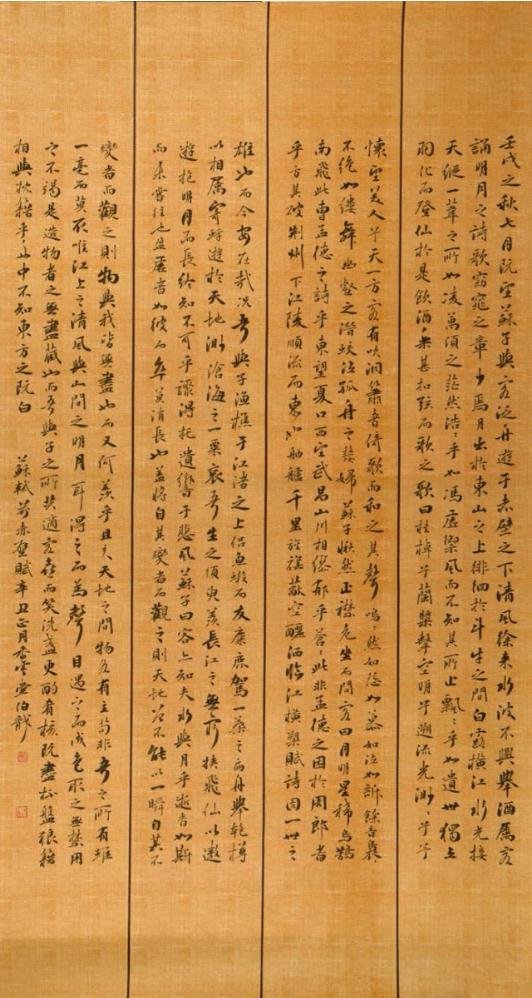 壬戌之秋七月既望蘇子與客泛舟遊于赤壁之下清風徐來水波不興舉酒屬客
誦明月之詩歌窈窕之章少焉月出於東山之上徘徊於斗牛之間白露橫江水光接
天縱一葦之所如凌萬頃之茫然浩浩乎如馮虛御風而不知其所止飄飄乎如遺世獨立
羽化而登仙於是飲酒樂甚扣弦而歌之歌曰桂棹兮蘭槳擊空明兮遡流光渺渺兮予
懷望美人兮天一方客有吹洞簫者倚歌而和之其聲嗚嗚然如怨如慕如泣如訴餘音裊裊
不絕如縷舞幽壑之潛蛟泣孤舟之嫠婦蘇子愀然正襟危坐而問客曰月明星稀烏鵲
南飛此曹孟德之詩乎東望夏口西望武昌山川相繆郁乎蒼蒼此非孟德之困於周郎者
乎方其破荊州下江陵順流而東也舳艫千里旌旗蔽空釃酒臨江橫槊賦詩固一世之
雄也而今安在哉況吾與子漁樵于江渚之上侶魚蝦而友麋鹿駕一葉之扁舟舉匏樽
以相屬寄蜉蝣於天地渺滄海之一粟哀吾生之須臾羨長江之無窮挾飛仙以遨
遊抱明月而長終知不可乎驟得托遺響于悲風蘇子曰客亦知夫水與月乎逝者如斯
而未嘗往也盈虛者如彼而卒莫消長也蓋將自其變者而觀之則天地曾不能以一瞬自其不
變者而觀之則物與我皆無盡也而又何羨乎且夫天地之間物各有主苟非吾之所有雖
一毫而莫取惟江上之清風與山間之明月耳得之而為聲目遇之而成色取之無禁用
之不竭是造物者之無盡藏也而吾與子之所共適客喜而笑洗盞更酌肴核既盡杯盤狼藉
相與枕藉乎舟中不知東方之既白 蘇軾前赤壁賦辛丑正月